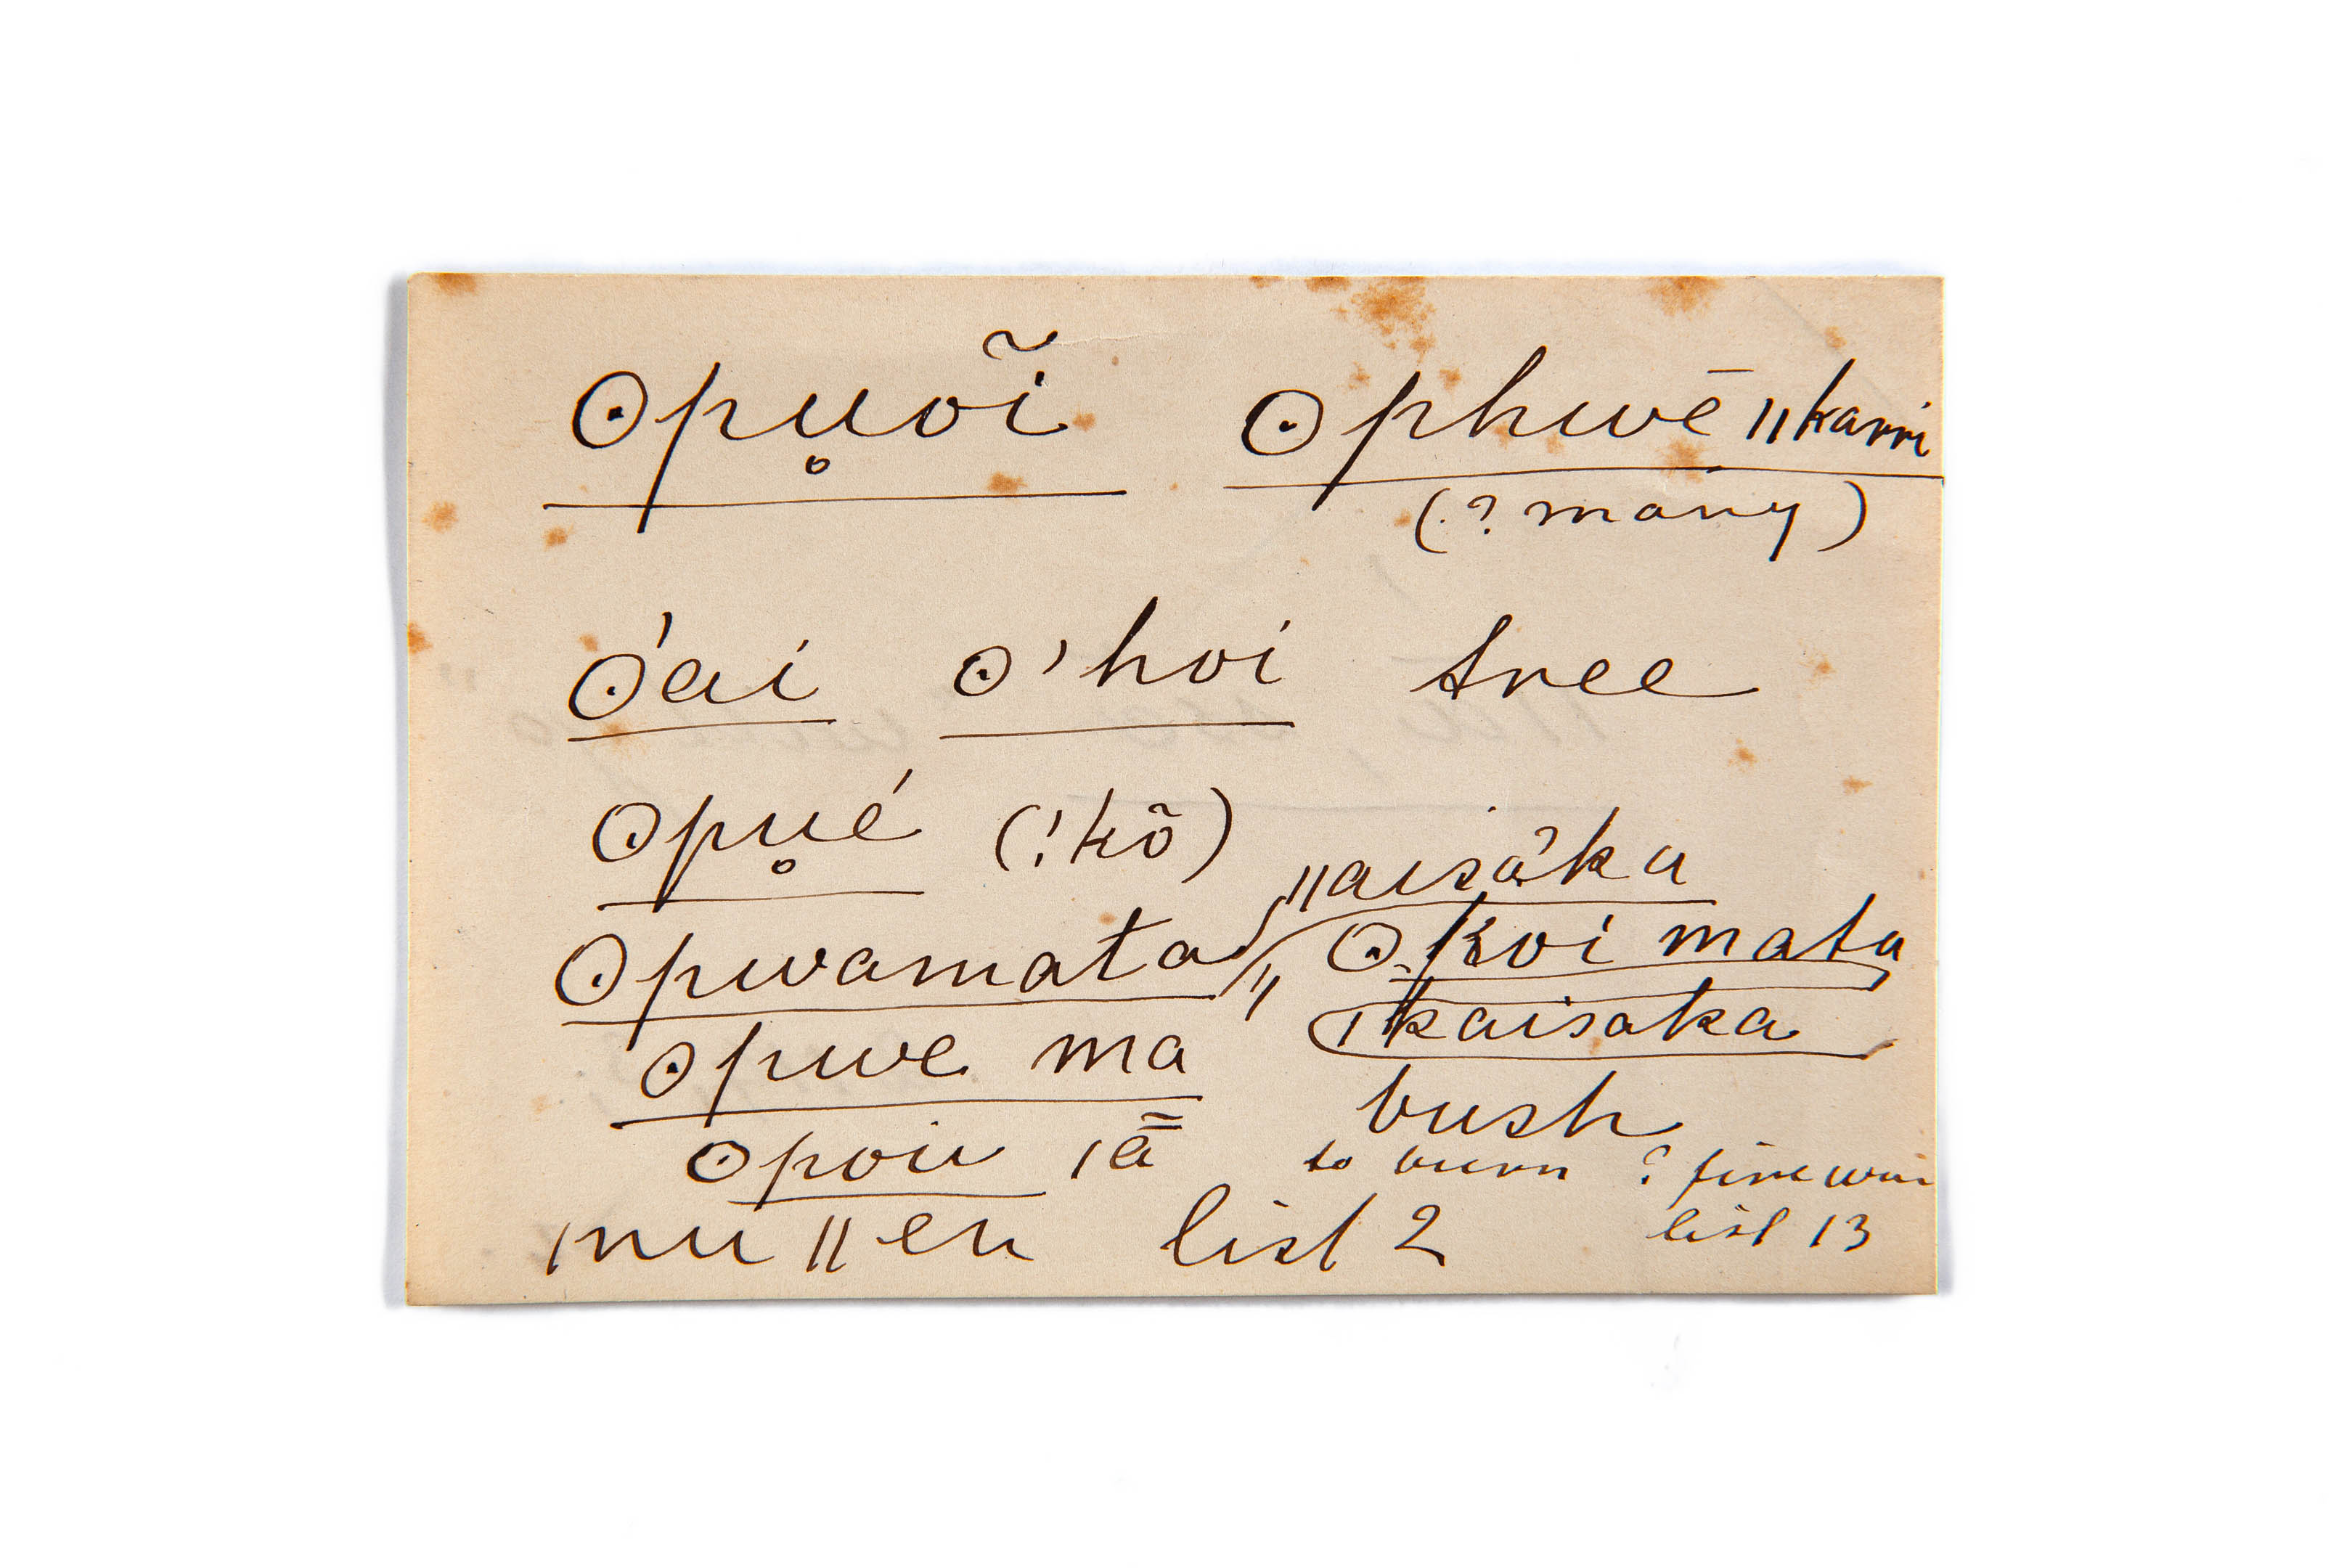 ʘpu̥õĩ ʘphwē ǁkarri
(? many)
ʘ'ai ʘ'hoi tree
ʘpu̥é (!kõ)
ǁaisa'ka
ʘpwamata ʘkoi mata
ʘpwe ma ǀkaisaka
bush
ʘpoii ǀā̄ to burn ?
ǀnu ǁen list 2 list 13